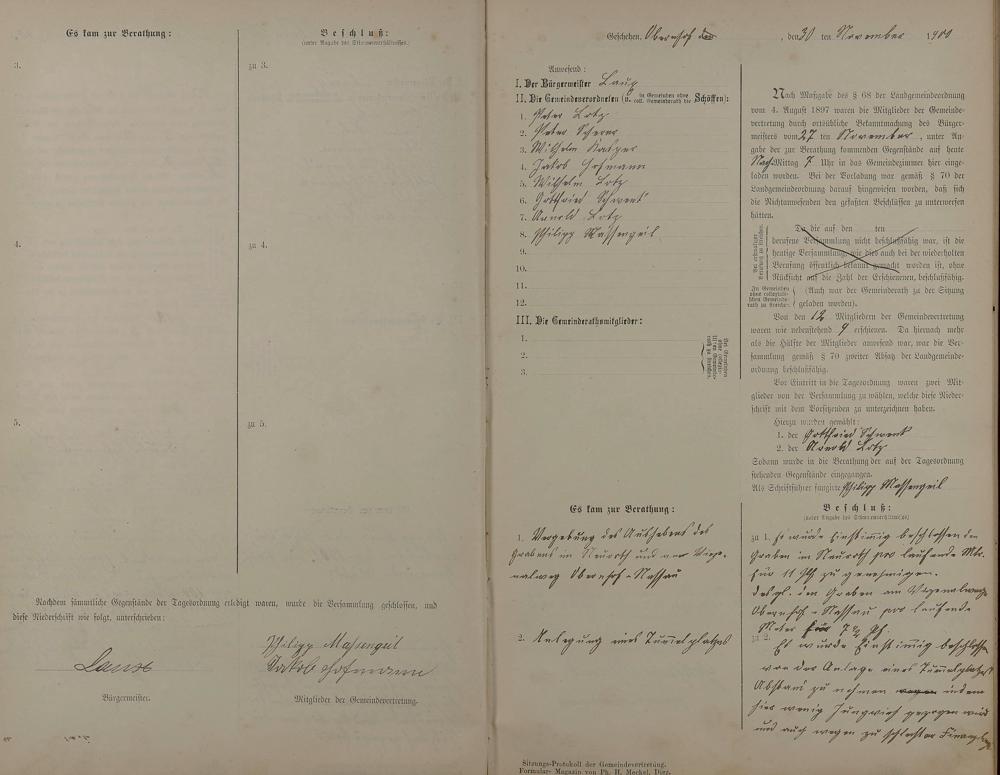 Es kam zur Berathung:
Beschluß:
(unter Angabe des Stimmenverhältnisses.)
3.
zu 3.
4.
zu 4.
5.
zu 5.
Nachdem sämmtliche Gegenstände der Tagesordnung erledigt waren, wurde die Versammlung geschlossen, und
diese Niederschrift wie folgt, unterschrieben:
Philipp Massengeil
Jakob Hofmann
Bürgermeister.
Mitglieder der Gemeindevertretung.
Geschehen, Obernhof, den 30 ten November 1900
Anwesend:
I. Der Bürgermeister
II. Die Gemeindeverordneten (u. in Gemeinden ohne coll. Gemeinderath die Schöffen):
1. Peter Lotz
2. Peter Scherer
3. Wilhelm
4. Jakob Hofmann
5. Wilhelm Lotz
6. Gottfried Schwenk
7. Arnold Lotz
8. Philipp Massengeil
9.
10.
11.
12.
III. Die Gemeinderathsmitglieder:
1.
2.
3.
Nach Maßgabe des § 68 der Landgemeindeordnung
vom 4. August 1897 waren die Mitglieder der Gemeinde-
vertretung durch ortsübliche Bekanntmachung des Bürger-
meisters vom 27 ten November, unter An-
gabe der zur Berathung kommenden Gegenstände auf heute
Nach Mittag 7 Uhr in das Gemeindezimmer hier einge-
laden worden. Bei der Vorladung war gemäß § 70 der
Landgemeindeordnung darauf hingewiesen worden, daß sich
die Nichtanwesenden den gefaßten Beschlüssen zu unterwerfen
hätten.
Da die auf den ten
berufene Versammlung nicht beschlußfähig war, ist die
heutige Versammlung, wie dies auch bei der wiederholten
Berufung öffentlich bekannt gemacht worden ist, ohne
Rücksicht auf die Zahl der Erschienenen, beschlußfähig.
(Auch war der Gemeinderath zu der Sitzung
geladen worden).
Von den 12 Mitgliedern der Gemeindevertretung
waren wie nebenstehend 9 erschienen. Da hiernach mehr
als die Hälfte der Mitglieder anwesend war, war die Ver-
sammlung gemäß § 70 zweiter Absatz der Landgemeinde-
ordnung beschlußfähig.
Vor Eintritt in die Tagesordnung waren zwei Mit-
glieder von der Versammlung zu wählen, welche diese Nieder-
schrift mit dem Vorsitzenden zu unterzeichnen haben.
Hierzu wurden gewählt:
1. der Gottfried Schwenk
2. der Arnold Lotz
Sodann wurde in die Berathung der auf der Tagesordnung
stehenden Gegenstände eingegangen.
Als Schriftführer fungirte Philipp Massengeil
Es kam zur Berathung:
1. Vergebung des Aushebens des
Grabens im Neuroth und am
Obernhof-Nassau
2. Anlegung eines Tummelplatzes
Beschluß:
(unter Angabe des Stimmenverhältnisses)
zu 1. Es wurde Einstimmig beschlossen den
Graben im Neuroth pro laufende Mtr.
für 11 Pfg zu genehmigen.
desgl. den Graben am Vizinalwege
Obernhof-Nassau pro laufende
Meter für 7½ Pf.
zu 2. Es wurde Einstimmig beschlossen
von der Anlage eines Tummelplatzes
Abstand zu nehmen indem
hier wenig Jungvieh gezogen wird
und auch wegen zu schlechter
Sitzungs-Protokoll der Gemeindevertretung.
Formular-Magazin von Ph. H. Meckel, Diez.